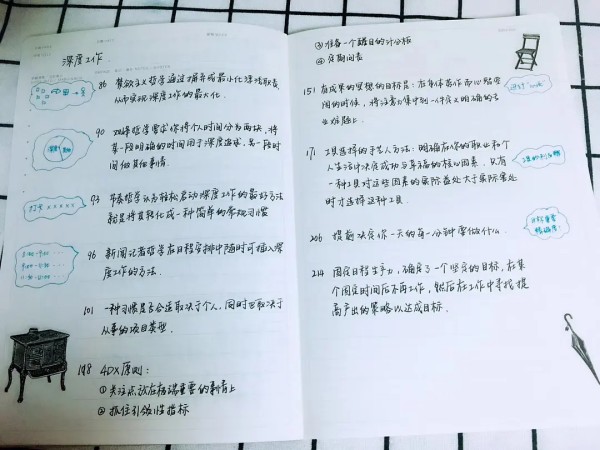 深度工作.
86 禁欲主义哲学通过摒弃或最小化浮浅职责,
从而实现深度工作的最大化.
90 双峰哲学要求你将个人时间分为两块,将
某一段明确的时间用于深度追求,另一段时
间做其他事情.
93 节奏哲学认为轻松启动深度工作的最好方法
就是将其转化成一种简单的常规习惯
打卡 x x x x x
96 新闻记者哲学在日程安排中随时可插入深
度工作的方法.
101 一种习惯是否合适取决于个人,同时也取决于
从事的项目类型.
108 4DX原则:
①关注点放在极端重要的事情上
②抓住引领性指标
③准备一个醒目的计分板
④定期问责
151 有成果的冥想的目标是:在身体劳作而心智空
闲的时候,将注意力集中到一件定义明确的专
业难题上.
171 工具选择的手艺人方法:明确在你的职业和个
人生活中决定成功与幸福的核心因素.只有
一种工具对这些因素的实际益处大于实际害处
时才选择这种工具.
工具的利与弊
206 提前决定你一天的每一分钟要做什么.
214 固定日程生产力,确定了一个坚定的目标,在某
个固定时间后不再工作,然后在工作中寻找提
高产出的策略以达成目标.